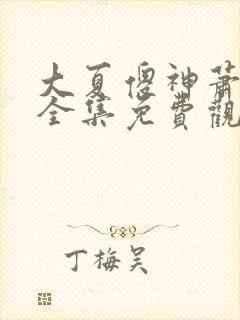 大夏傻神蕭
全集免費觀
丁梅吴